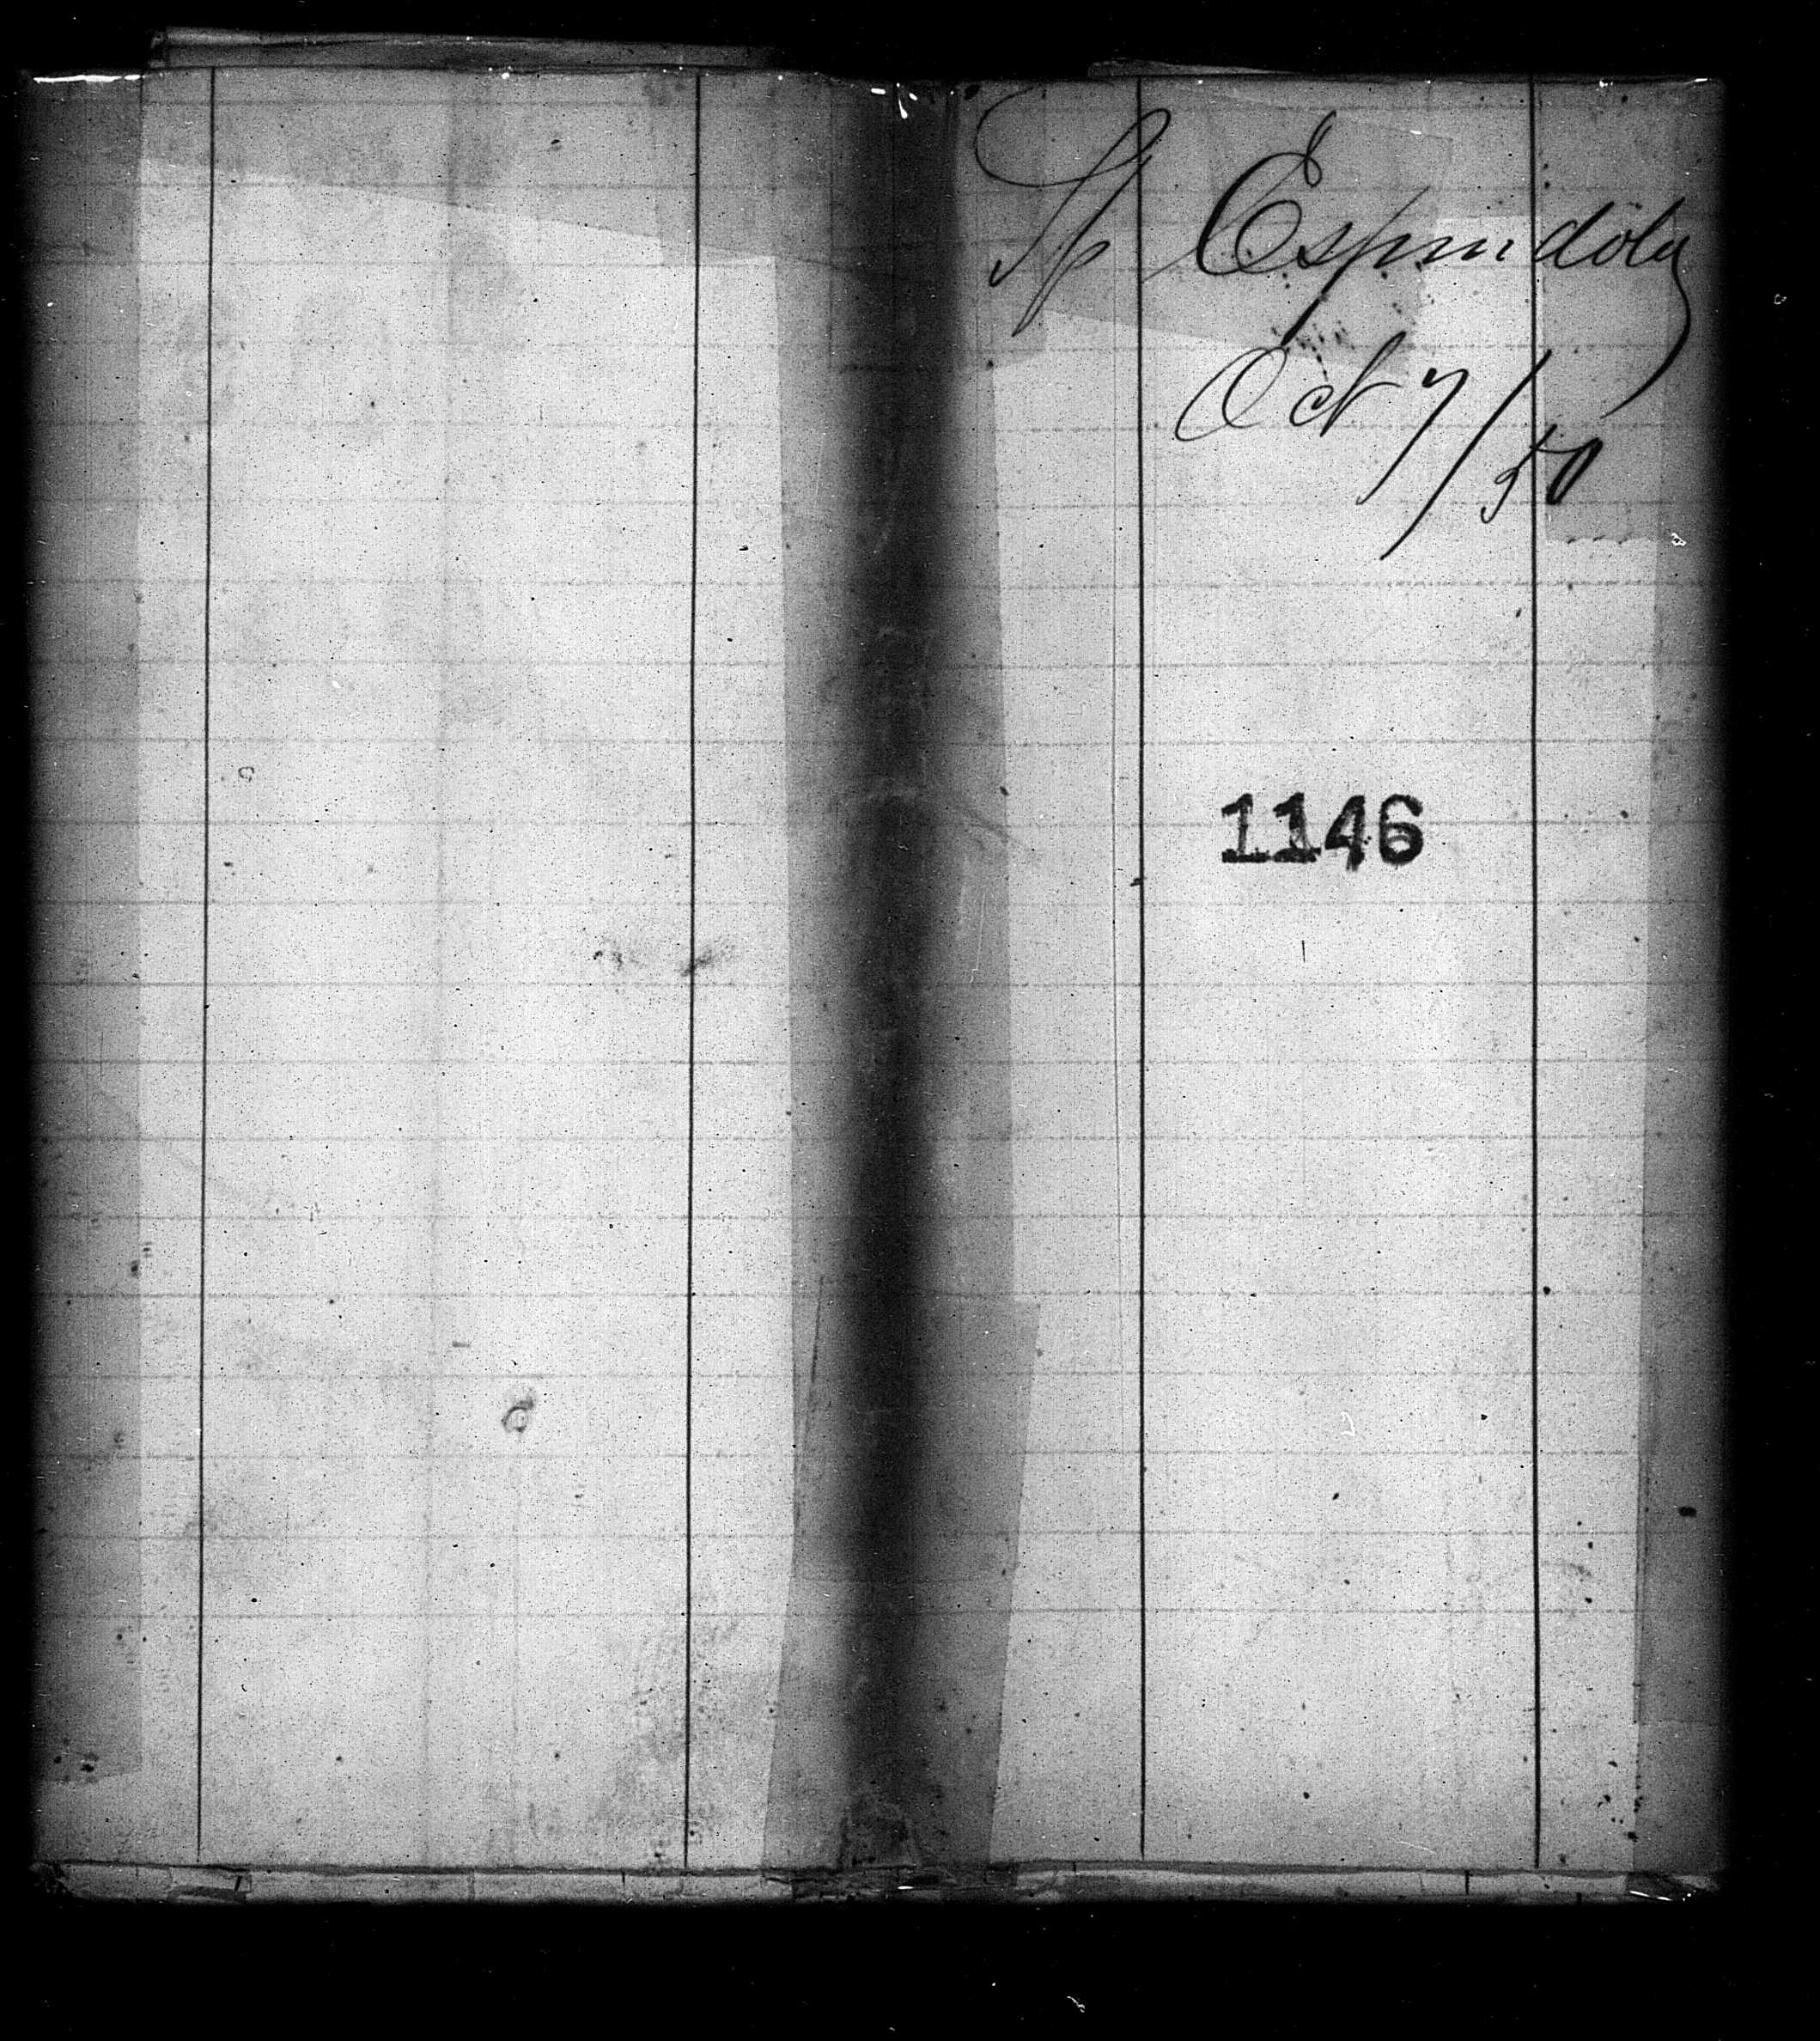 Espindola
Oct 7/50
1146